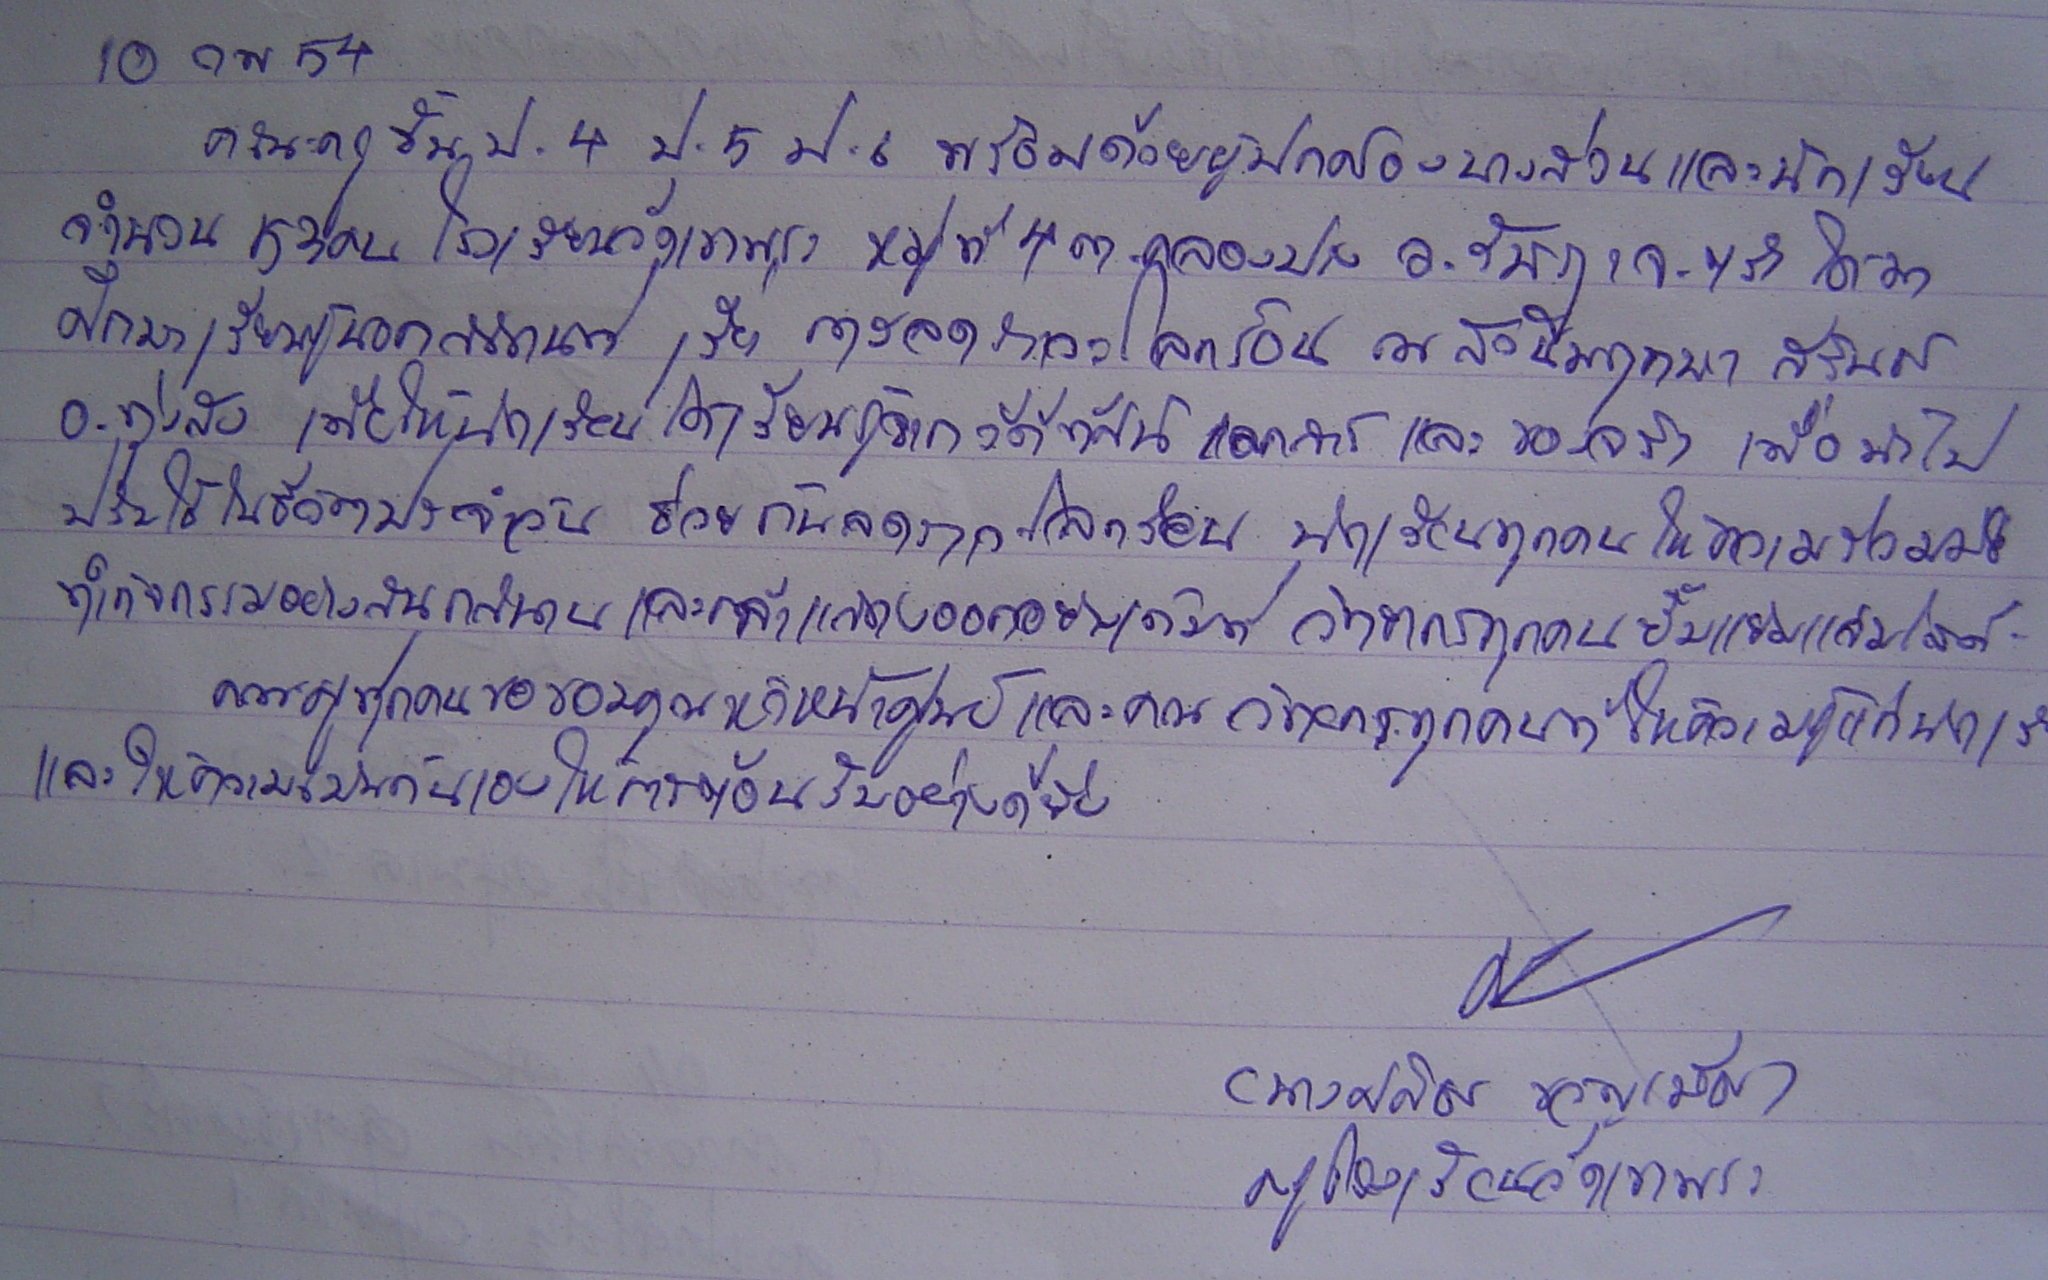 10 กพ 54
คณะครูชั้น ป.4 ป.5 ป.6 พร้อมด้วยผู้ปกครองบางส่วนและนักเรียน
จำนวน คน โรงเรียนวัดเขาพระ หมู่ที่ 4 ต.คลองปาง อ.รัษฎา จ.ตรัง ได้มา
ศึกษาเรียนรู้นอกสถานที่ เรื่อง การลดภาวะโลกร้อน ณ สถานีพฤกษา สิรินธร
อ.ทุ่งสง เพื่อให้นักเรียนได้เรียนรู้จากวีดีทัศน์ เอกสาร และ ของจริง เพื่อนำไป
ปรับใช้ในชีวิตประจำวัน ช่วยกันลดภาวะโลกร้อน นักเรียนทุกคนให้ความร่วมมือ
ทำกิจกรรมอย่างสนุกสนาน และกล้าแสดงออกอย่างเต็มที่ วิทยากรทุกคนยิ้มแย้มแจ่มใสดี
คณะครูทุกคนขอขอบคุณหัวหน้าศูนย์ และคณะวิทยากรทุกคนที่ให้ความรู้แก่นักเรี
และให้ความเป็นกันเองให้การต้อนรับอย่างดียิ่ง
(นาง
ครูโรงเรียนวัดเขาพระ